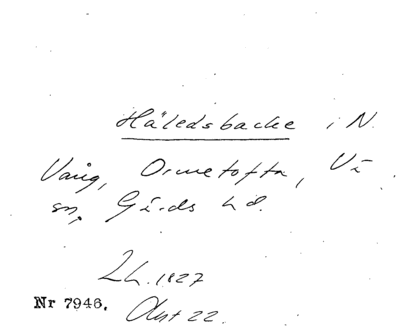 Häledsbacke i N.
Vång, Ormetofta, Vä
sn, Gärds hd.
Lh. 1827
Nr 7946. Akt 22.